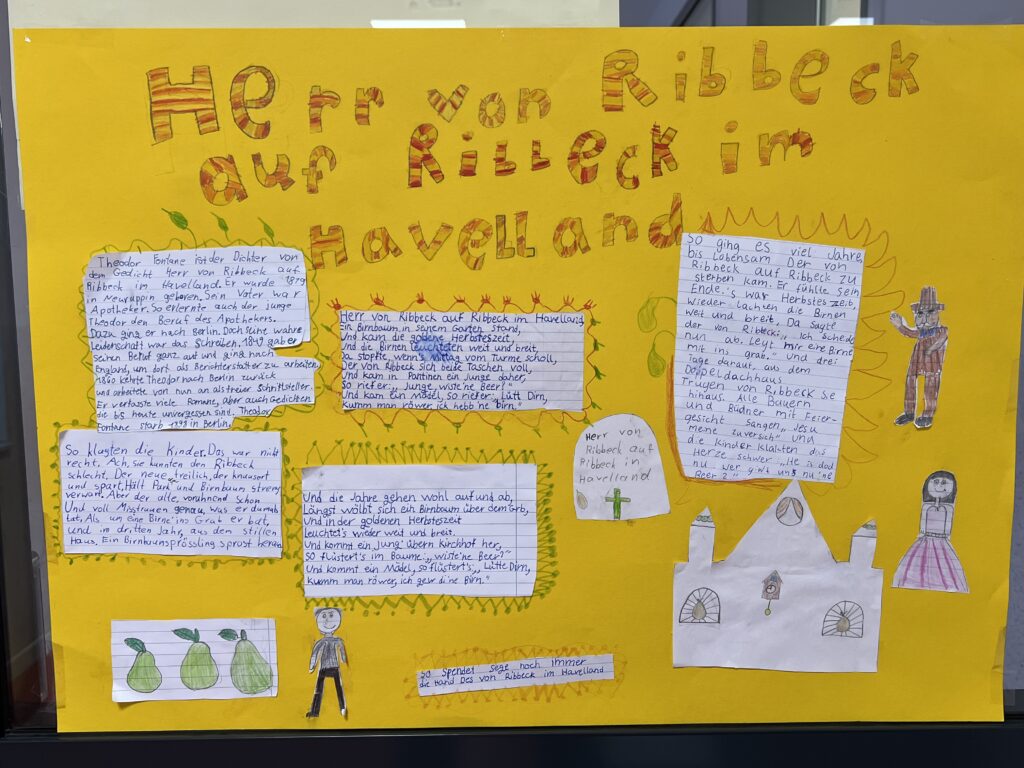 Herr von Ribbeck
auf Ribbeck im
Havelland
Theodor Fontane ist der Dichter von
dem Gedicht Herr von Ribbeck auf
Ribbeck im Havelland. Er wurde 1819
in Neuruppin geboren. Sein Vater war
Apotheker. So erlernte auch der junge
Theodor den Beruf des Apothekers.
Dazu ging er nach Berlin. Doch seine wahre
Leidenschaft war das Schreiben, 1849 gab er
seinen Beruf ganz auf und ging nach
England, um dort als Berichterstatter zu arbeiten,
1860 kehrte Theodor nach Berlin zurück
und arbeitete von nun an als freier Schriftsteller.
Er verfasste viele Romane, aber auch Gedichten
die bis heute unvergessen sind. Theodor
Fontane starb 1898 in Berlin.
Herr von Ribbeck auf Ribbeck im Havelland,
Ein Birnbaum in seinem Garten stand,
Und kam die goldene Herbsteszeit,
Und die Birnen leuchteten weit und breit,
Da stopfte, wenn's Mittag vom Turme scholl,
Der von Ribbeck sich beide Taschen voll,
Und kam in Pantinen ein Junge daher,
So rief er: „Junge, wiste'ne Beer?"
Und kam ein Mädel, so rief er: „Lütt Dirn,
Kumm man röwer, ick hebb'ne Birn."
So ging es viel Jahre,
bis lobensam Der von
Ribbeck auf Ribbeck zu
sterben kam. Er fühlte sein
Ende.'s war Herbsteszeit,
wieder lachten die Birnen
weit und breit, Da sagte
der von Ribbeck: „Ich scheide
nun ab. Legt mir eine Birne
mit ins grab." Und drei
Tage darauf, aus dem
Doppeldachhaus
Trugen von Ribbeck sie
hinaus. Alle Bauern
und Büdner mit Feier-
gesicht Sangen „Jesu
meine zuversicht" Und
die Kinder klagten das
Herze schwer „He is dod
nu. wer giwt uns nu 'ne
Beer?"
So klagten die Kinder. Das war nicht
recht. Ach, sie kannten den Ribbeck
schlecht. Der neue freilich, der knausert
und spart, Hält Park und Birnbaum strenge
verwart. Aber der alte, vorahnend schon
Und voll Misstrauen genau, was er damals
tat, Als um eine Birne ins Grab er bat,
und im dritten Jahr, aus dem stillen
Haus, Ein Birnbaumsprössling sprosst heraus
Und die Jahre gehen wohl auf und ab,
Längst wölbt sich ein Birnbaum über dem Grab,
Und in der goldenen Herbstzeit
leuchtet's wieder weit und breit.
Und kommt ein Jung' übern Kirchhof her,
So flüstert's im Baume: „wiste'ne Beer?"
Und kommt ein Mädel, so flüstert's: „Lütte Dirn,
Kumm man röwer, ick gew di'ne Birn."
Herr von
Ribbeck auf
Ribbeck in
Havelland
So Spendet Sege noch immer
die Hand Des von Ribbeck im Havelland